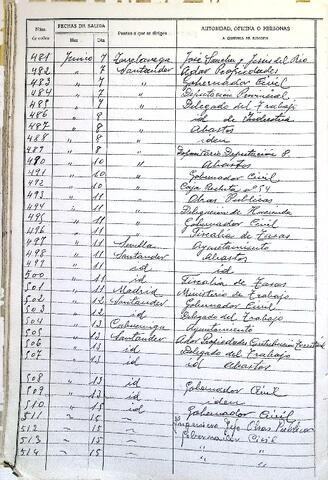 Núm. de orden FECHAS DE SALIDA Puntos a que se dirigen AUTORIDAD, OFICINA O PERSONAS A QUIENES SE DIRIGEN
Mes Día
481 Junio 7 Torrelavega José Sanchez y Jesús del Rio
482 " 7 Santander Admor Propiedades
483 " 7 " Gobernador Civil
484 " 7 " Diputación Provincial
485 " 7 " Delegado del Trabajo
486 " 8 " id de
487 " 8 " Abastos
488 " 8 " iden
489 " 8 " Diputación P.
480 " 10 " Abastos
491 " 10 " Gobernador Civil
492 " 10 " Caja Recluta nº 54
493 " 11 " Obras Publicas
494 " 11 " Delegacion de Hacienda
495 " 11 " Gobernador Civil
496 " 11 " Fiscalia de Tasas
497 " 11 Sevilla Ayuntamiento
498 " 11 Santander Abastos
499 " 11 id id
500 " 11 id Fiscalia de Tasas
501 " 11 Madrid Ministerio de Trabajo
502 " 12 Santander Gobernador Civil
503 " 12 id Delegado del Trabajo
504 " 13 Cabuerniga Ayuntamiento
505 " 13 Santander Ador Propiedades Contribución Territorial
506 " 13 id Delegado del Trabajo
507 " 13 id id Abastos
508 " 13 id Gobernador Civil
509 " 13 id iden
510 " 15 id Gobernador Civil
511 " 15 " Ingeniero Jefe Obras Publicas
512 " 15 " Gobernador Civil
513 " 15 " "
514 " 15 " "